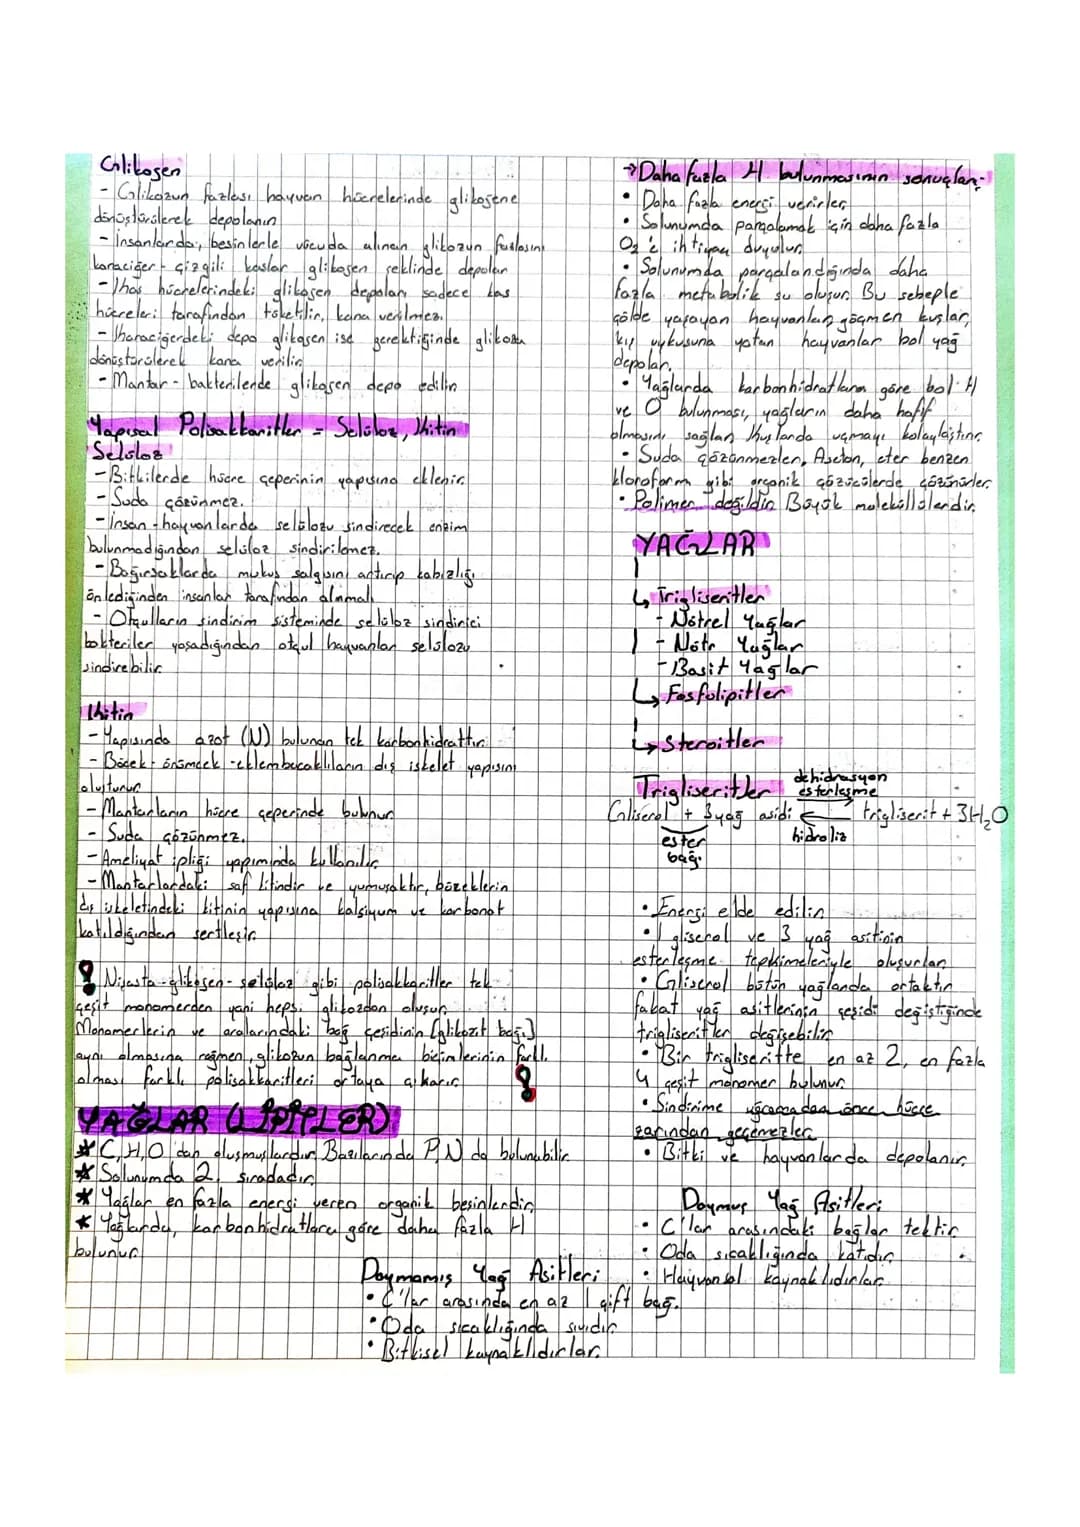 Glikojen
- Glikozun fazlası hayvan hücrelerinde glikojene
dönüştürülerek depolanır.
- İnsanlarda, besinlerle vücuda alınan glikozun fazlasını
karaciğer - çizgili kaslar glikojen şeklinde depolar
- Kas hücrelerindeki glikojen depoları sadece kas
hücreleri tarafından tüketilir, kana verilmez.
- Karaciğerdeki depo glikojen ise gerektiğinde glikoza
dönüştürülerek kana verilir.
- Mantar - bakterilerde glikojen depo edilir.
Yapısal Polisakkaritler = Selüloz, Kitin
Selüloz
- Bitkilerde hücre çeperinin yapısına eklenir.
- Suda çözünmez.
- İnsan - hayvanlarda selülozu sindirecek enzim
bulunmadığından selüloz sindirilemez.
- Bağırsaklarda mukus salgısını artırıp kabızlığı
önlediğinden insanlar tarafından alınmalı
- Otçulların sindirim sisteminde selüloz sindirici
bakteriler yaşadığından otçul hayvanlar selülozu
sindirebilir.
Kitin
- Yapısında azot (N) bulunan tek karbonhidrattır.
- Böcek - örümcek - eklembacaklıların dış iskelet yapısını
oluşturur.
- Mantarların hücre çeperinde bulunur
- Suda çözünmez.
- Ameliyat ipliği yapımında kullanılır.
- Mantarlardaki saf kitindir ve yumuşaktır, böceklerin
dış iskeletindeki kitinin yapısına kalsiyum ve karbonat
katıldığından sertleşir.
! Nişasta - glikojen - selüloz gibi polisakkaritler tek
çeşit monomerden yani hepsi glikozdan oluşur.
Monomerlerin ve aralarındaki bağ çeşidinin (glikozit bağı)
aynı olmasına rağmen, glikozun bağlanma biçimlerinin farklı
olması farklı polisakkaritleri ortaya çıkarır. !
YAĞLAR (LİPİTLER)
* C, H, O'dan oluşmuşlardır. Bazılarında P, N da bulunabilir.
* Solunumda 2. sıradadır.
* Yağlar en fazla energi veren organik besinlerdir.
* Yağlarda, karbonhidratlara göre daha fazla H
bulunur.
Doymamış Yağ Asitleri
• C'lar arasında en az 1 çift bağ.
• Oda sıcaklığında sıvıdır.
• Bitkisel kaynaklıdırlar.
→ Daha fazla H bulunmasının sonuçları:
• Daha fazla enerji verirler.
• Solunumda parçalamak için daha fazla
O2'e ihtiyaç duyulur.
• Solunumda parçalandığında daha
fazla metabolik su oluşur. Bu sebeple
çölde yaşayan hayvanlar, göçmen kuşlar,
kış uykusuna yatan hayvanlar bol yağ
depolar.
• Yağlarda karbonhidratlara göre bol H
ve O bulunması, yağların daha hafif
olmasını sağlar. Kuşlarda uçmayı kolaylaştırır.
• Suda çözünmezler, Aseton, eter benzen
kloroform gibi organik çözücülerde çözünürler.
• Polimer değildir. Büyük moleküllülerdir.
YAĞLAR
↳ Trigliseritler
- Nötrel Yağlar
- Nötr Yağlar
- Basit Yağlar
↳ Fosfolipitler
↳ Steroitler
Trigliseritler
dehidrasyon
esterleşme
Gliserol + 3 yağ asidi ⇄ trigliserit + 3H2O
hidroliz
ester
bağı
• Enerji elde edilir.
• 1 gliserol ve 3 yağ asitinin
esterleşme tepkimeleriyle oluşurlar.
• Gliserol bütün yağlarda ortaktır.
fakat yağ asitlerinin çeşidi değiştiğinde
trigliseritler değişebilir.
• Bir trigliseritte en az 2, en fazla
4 çeşit monomer bulunur.
• Sindirime uğramadan önce hücre
zarından geçemezler.
• Bitki ve hayvanlarda depolanır.
Doymuş Yağ Asitleri
• C'lar arasındaki bağlar tektir.
• Oda sıcaklığında katıdır.
• Hayvansal kaynaklıdırlar.